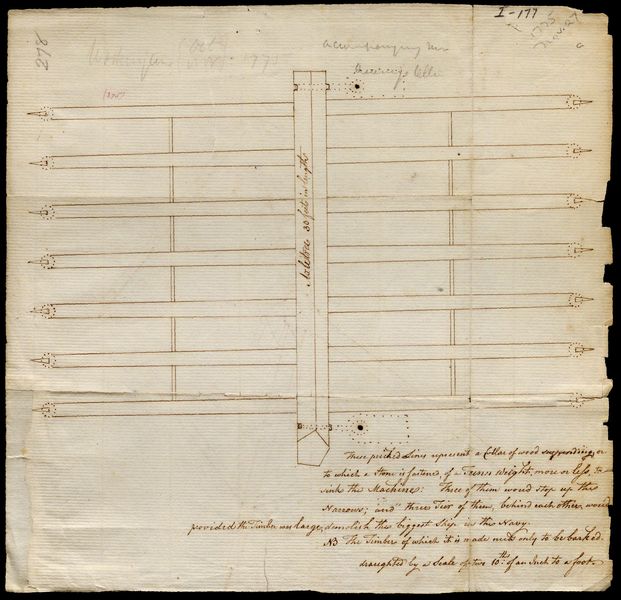 I-177
1775
Nov. 27
278
Washington
1775
accompanying
Axletree 30 feet in length
These pricked Lines represent a Collar of wood suspending, or
to which a Stone is fastened of a Weight, more or less, to
sink the Machine: Three of them would stop up the
Narrows; and three Tier of them, behind each other, would
provided the Timber was large, demolish the biggest Ship in the Navy.
NB The Timber of which it is made needs only to be barked.
draughted by a Scale of two 10ths. of an Inch to a foot.